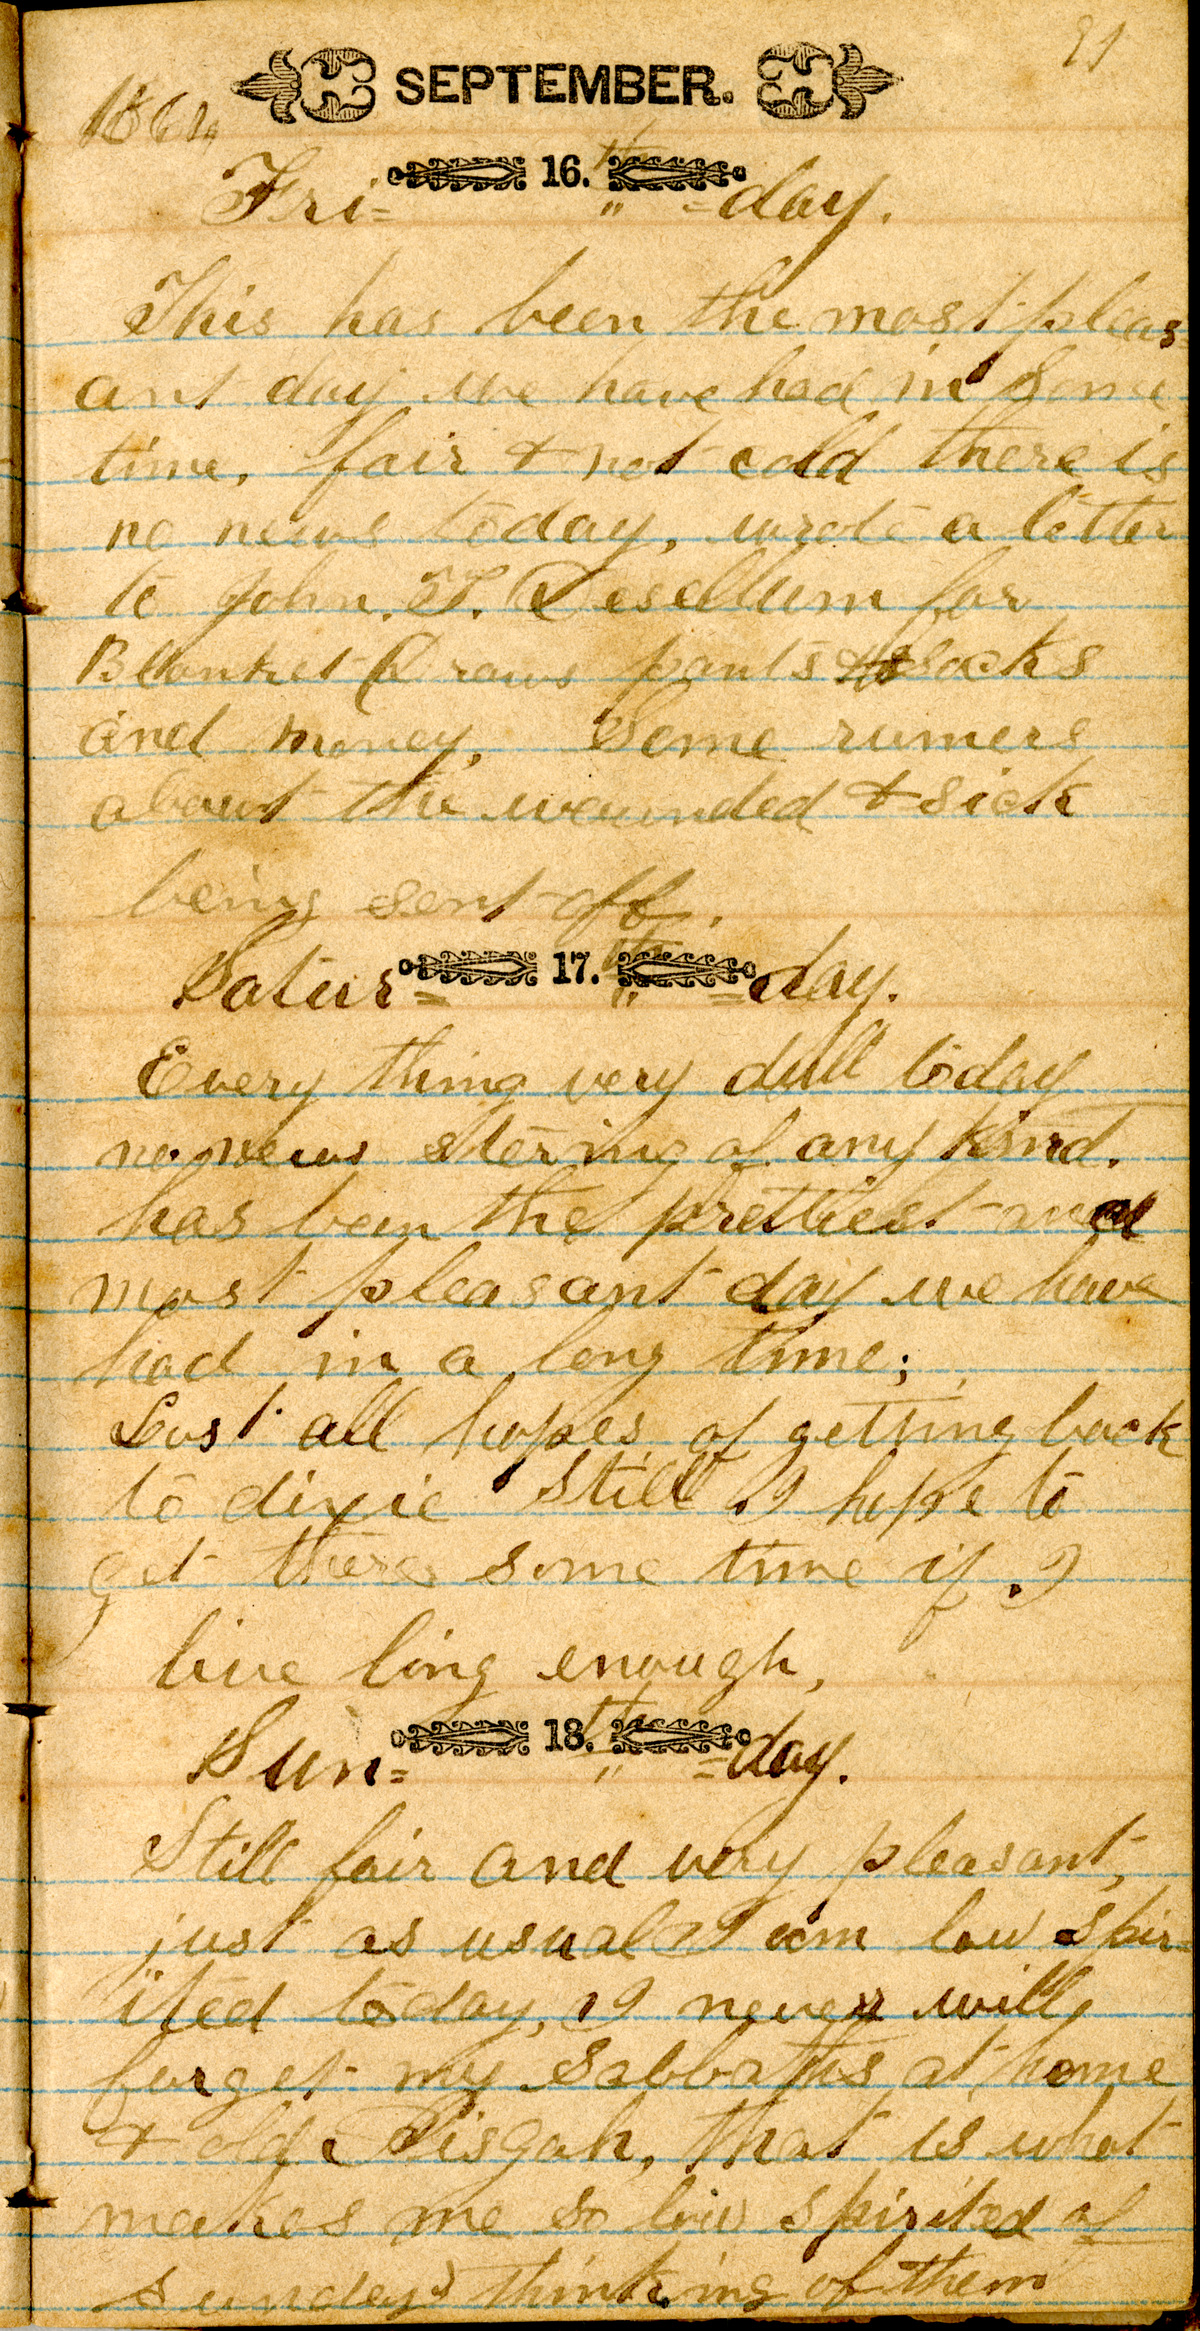 91
SEPTEMBER.
1864
16.th
Fri= " =day.
This has been the most pleas
ant day we have had in some
time. fair & not cold there is
no news today. wrote a letter
to John. T. Desellum for
Blanket Draws pants & socks
and money. Some rumers
about the wounded & sick
being sent off.
17.th
Satur= " =day.
Every thing very dull today
no news stering of any kind.
has been the prettiest and
most pleasant day we have
had in a long time;
Lost all hopes of getting back
to dixie still I hope to
get there some time if I
live long enough,
18.th
Sun= " =day.
Still fair and very pleasant,
just as usual I am low spir=
ited today, I never will
forget my Sabbaths at home
& old Pisgah, that is what
makes me so low spirited of
sundays thinking of them